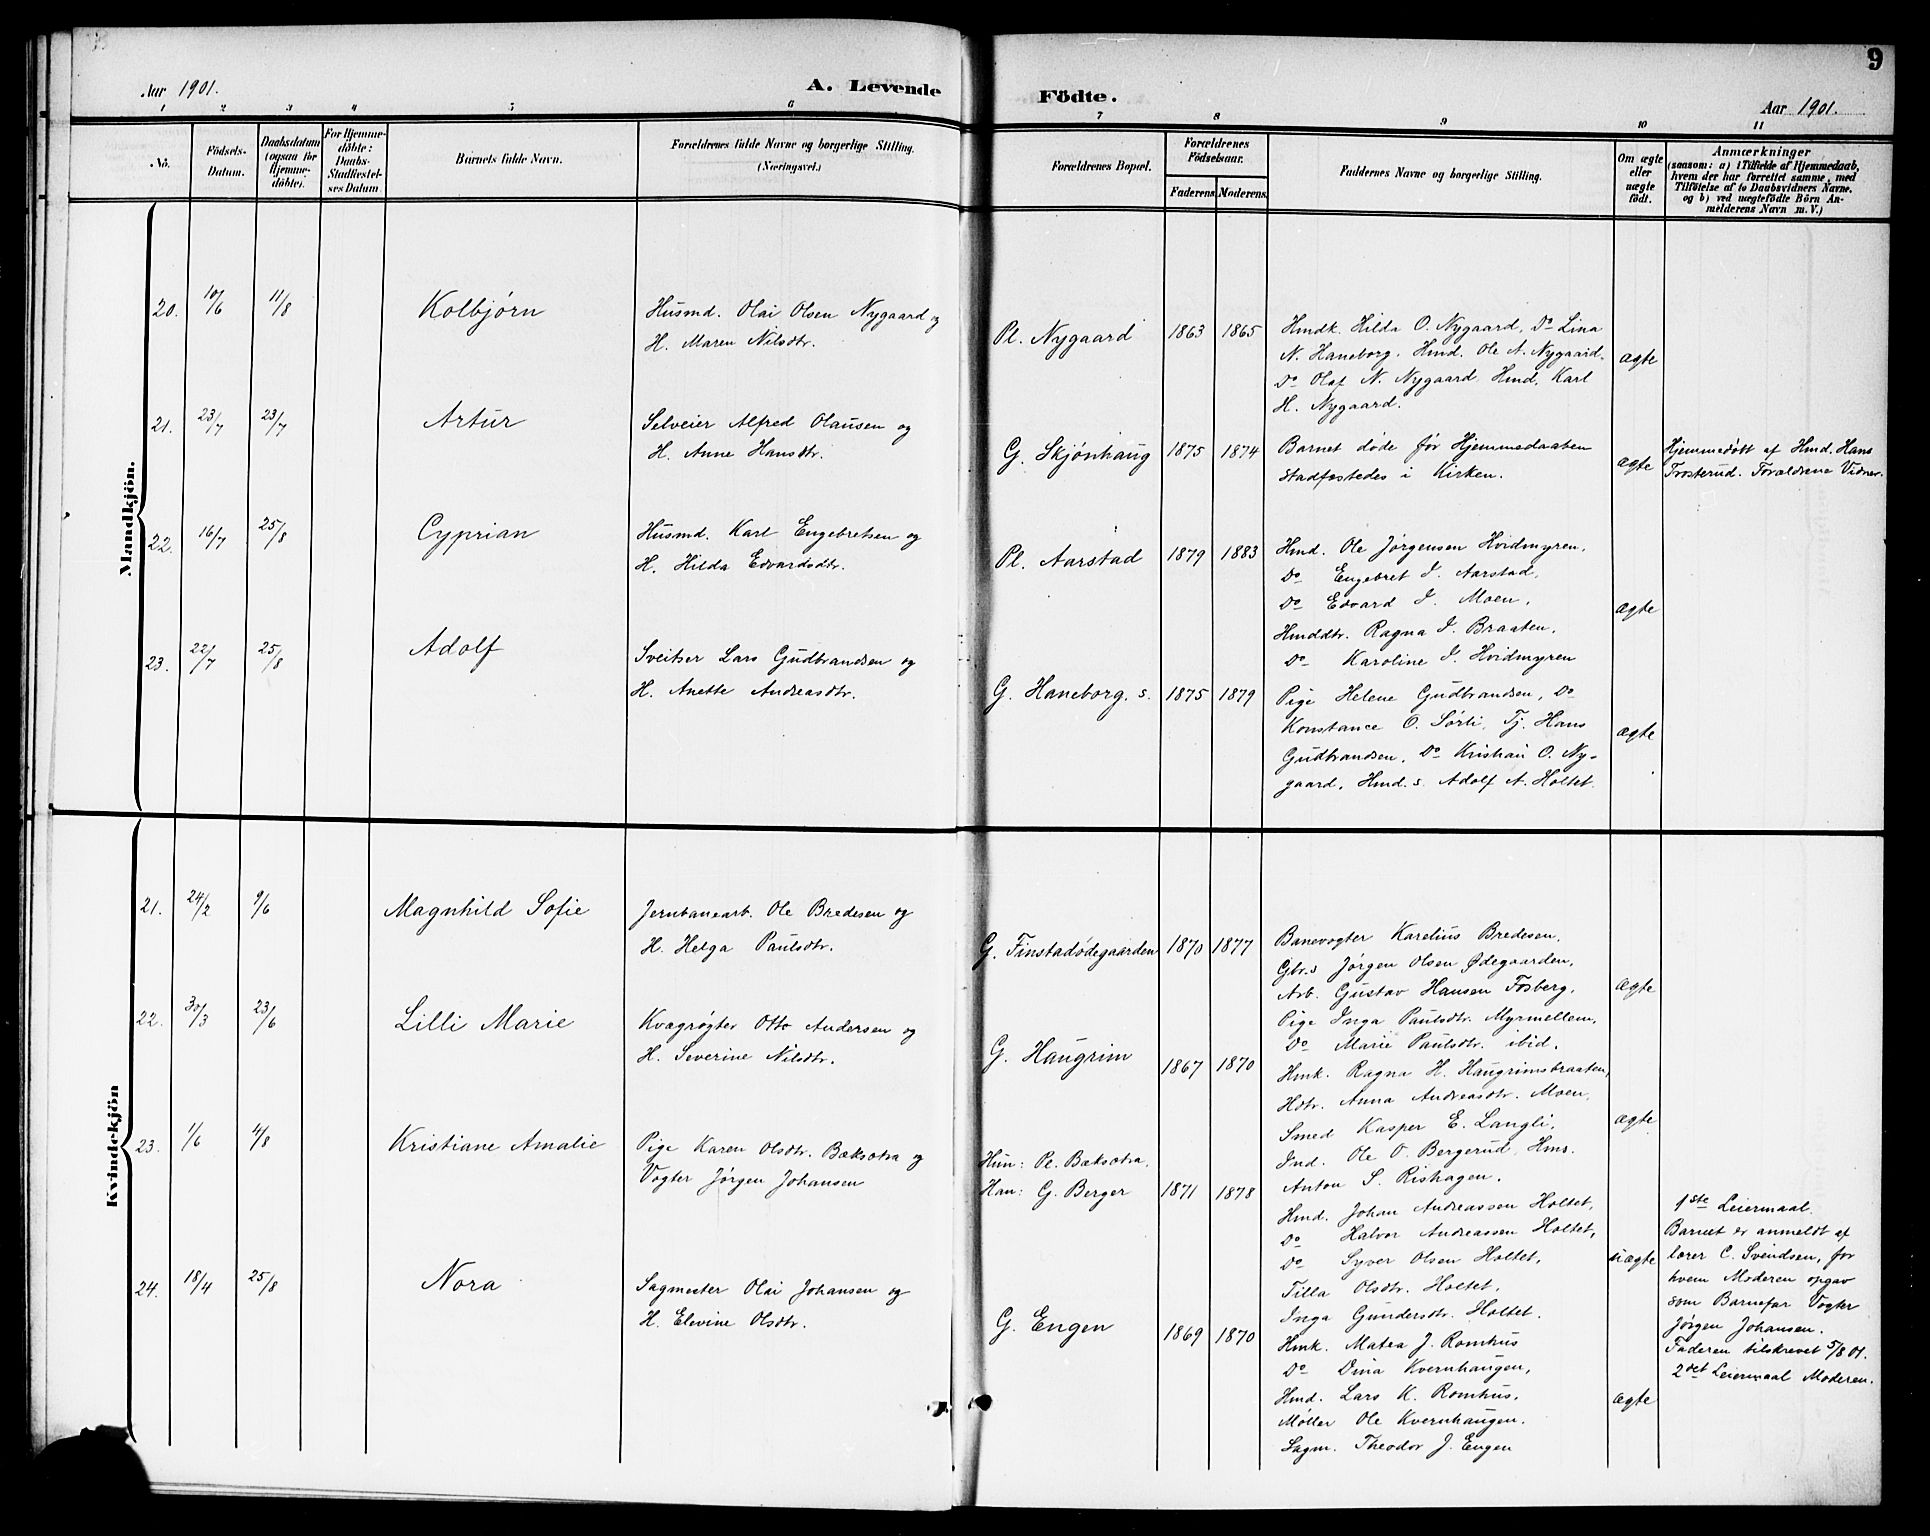 9
Aar 1901.
A. Levende
Födte.
Aar 1901.
1 2 3 4 5 6 7 8 9 10 11
No.
Födsels-
Datum.
Daabsdatum
(ogsaa for
Hjemme-
döbte).
For Hjemme-
döbte:
Daabs-
Stadfæstel-
ses Datum
Barnets fulde Navn.
Forældrenes fulde Navne og borgerlige Stilling.
(Næringsvei.)
Forældrenes Bopæl.
Forældrenes
Födselsaar.
Faderens. Moderens.
Faddernes Navne og borgerlige Stilling.
Om ægte
eller
uægte
födt.
Anmærkninger
(saasom: a) i Tilfælde af Hjemmedaab,
hvem der har forrettet samme, med
Tilföielse af to Daabsvidners Navne.
og b) ved uægtefödte Börn An-
melderens Navn m. V.)
Mandkjön.
20. 10/6 11/8 Kolbjørn
Husmd. Olai Olsen Nygaard og
H. Maren Nilsdtr.
Pl. Nygaard 1863 1865
Hmdk. Hilda O. Nygaard, Do Lina
N. Haneborg. Hmd. Ole A. Nygaard.
Do Olaf N. Nygaard Hmd. Karl
H. Nygaard.
ægte
21. 23/7 23/7 Artur
Selveier Alfred Olausen og
H. Anne Hansdtr.
G. Skjønhaug 1875 1874
Barnet døde før Hjemmedaaben
stadfæstedes i Kirken.
ægte
Hjemmedøbt af Hmd. Hans
Trosterud. Forældrene Vidner.
22. 16/7 25/8 Cyprian
Husmd. Karl Engebretsen og
H. Hilda Edvardsdtr.
Pl. Aarstad 1879 1883
Hmd. Ole Jørgensen Hvidmyren.
Do Engebret J. Aarstad,
Do Edvard J. Moen,
Hmddtr. Ragna J. Braaten,
Do Karoline J. Hvidmyren
ægte
23. 22/7 25/8 Adolf
Sveitser Lars Gudbrandsen og
H. Anette Andreasdtr.
G. Haneborg. s. 1875 1879
Pige Helene Gudbrandsen, Do
Konstance O. Sørli, Tj. Hans
Gudbrandsen, Do Kristian O. Ny-
gaard, Hmd. s. Adolf A. Holtet.
ægte
Kvindekjön
21. 24/2 9/6 Magnhild Sofie
Jernbanearb. Ole Bredesen og
H. Helga Paulsdtr.
G. Finstadødegaarden 1870 1877
Banevogter Karelius Bredesen,
Gbr.s Jørgen Olsen Ødegaarden,
Arb. Gustav Hansen Fosberg,
Pige Inga Paulsdtr. Myrmellem,
Do Marie Paulsdtr. ibid.
ægte
22. 30/3 23/6 Lilli Marie
Kvægrøgter Otto Andersen og
H. Severine Nilsdtr.
G. Haugrim 1867 1870
Hmk. Ragna H. Haugrimsbraaten,
Hdtr. Anna Andreasdtr. Moen,
Smed Kasper E. Langli,
Ind. Ole O. Bergerud, Hms.
Anton S. Rishagen.
ægte
23. 1/6 4/8 Kristiane Amalie
Pige Karen Olsdtr. Bæksætra og
Vogter Jørgen Johansen
Hun: Pl. Bæksætra,
Han: G. Berger 1871 1878
Hmd. Johan Andreassen Holtet,
Do Halvor Andreassen Holtet,
Do Syver Olsen Holtet,
Tilla Olsdtr. Holtet,
Inga Gundersdtr. Holtet.
uægte
1ste Leiermaal.
Barnet er anmeldt af
lærer C. Svendsen, for
hvem Moderen opgav
som Barnefar Vogter
Jørgen Johansen.
Faderen tilskrevet 5/8 01.
2det Leiermaal Moderen.
24. 18/4 25/8 Nora
Sagmester Olai Johansen og
H. Elevine Olsdtr.
G. Engen 1869 1870
Hmk. Matea J. Romhus
Do Dina Kvernhaugen,
Hmd. Lars K. Romhus,
Møller Ole Kvernhaugen.
Sagm. Theodor J. Engen
ægte